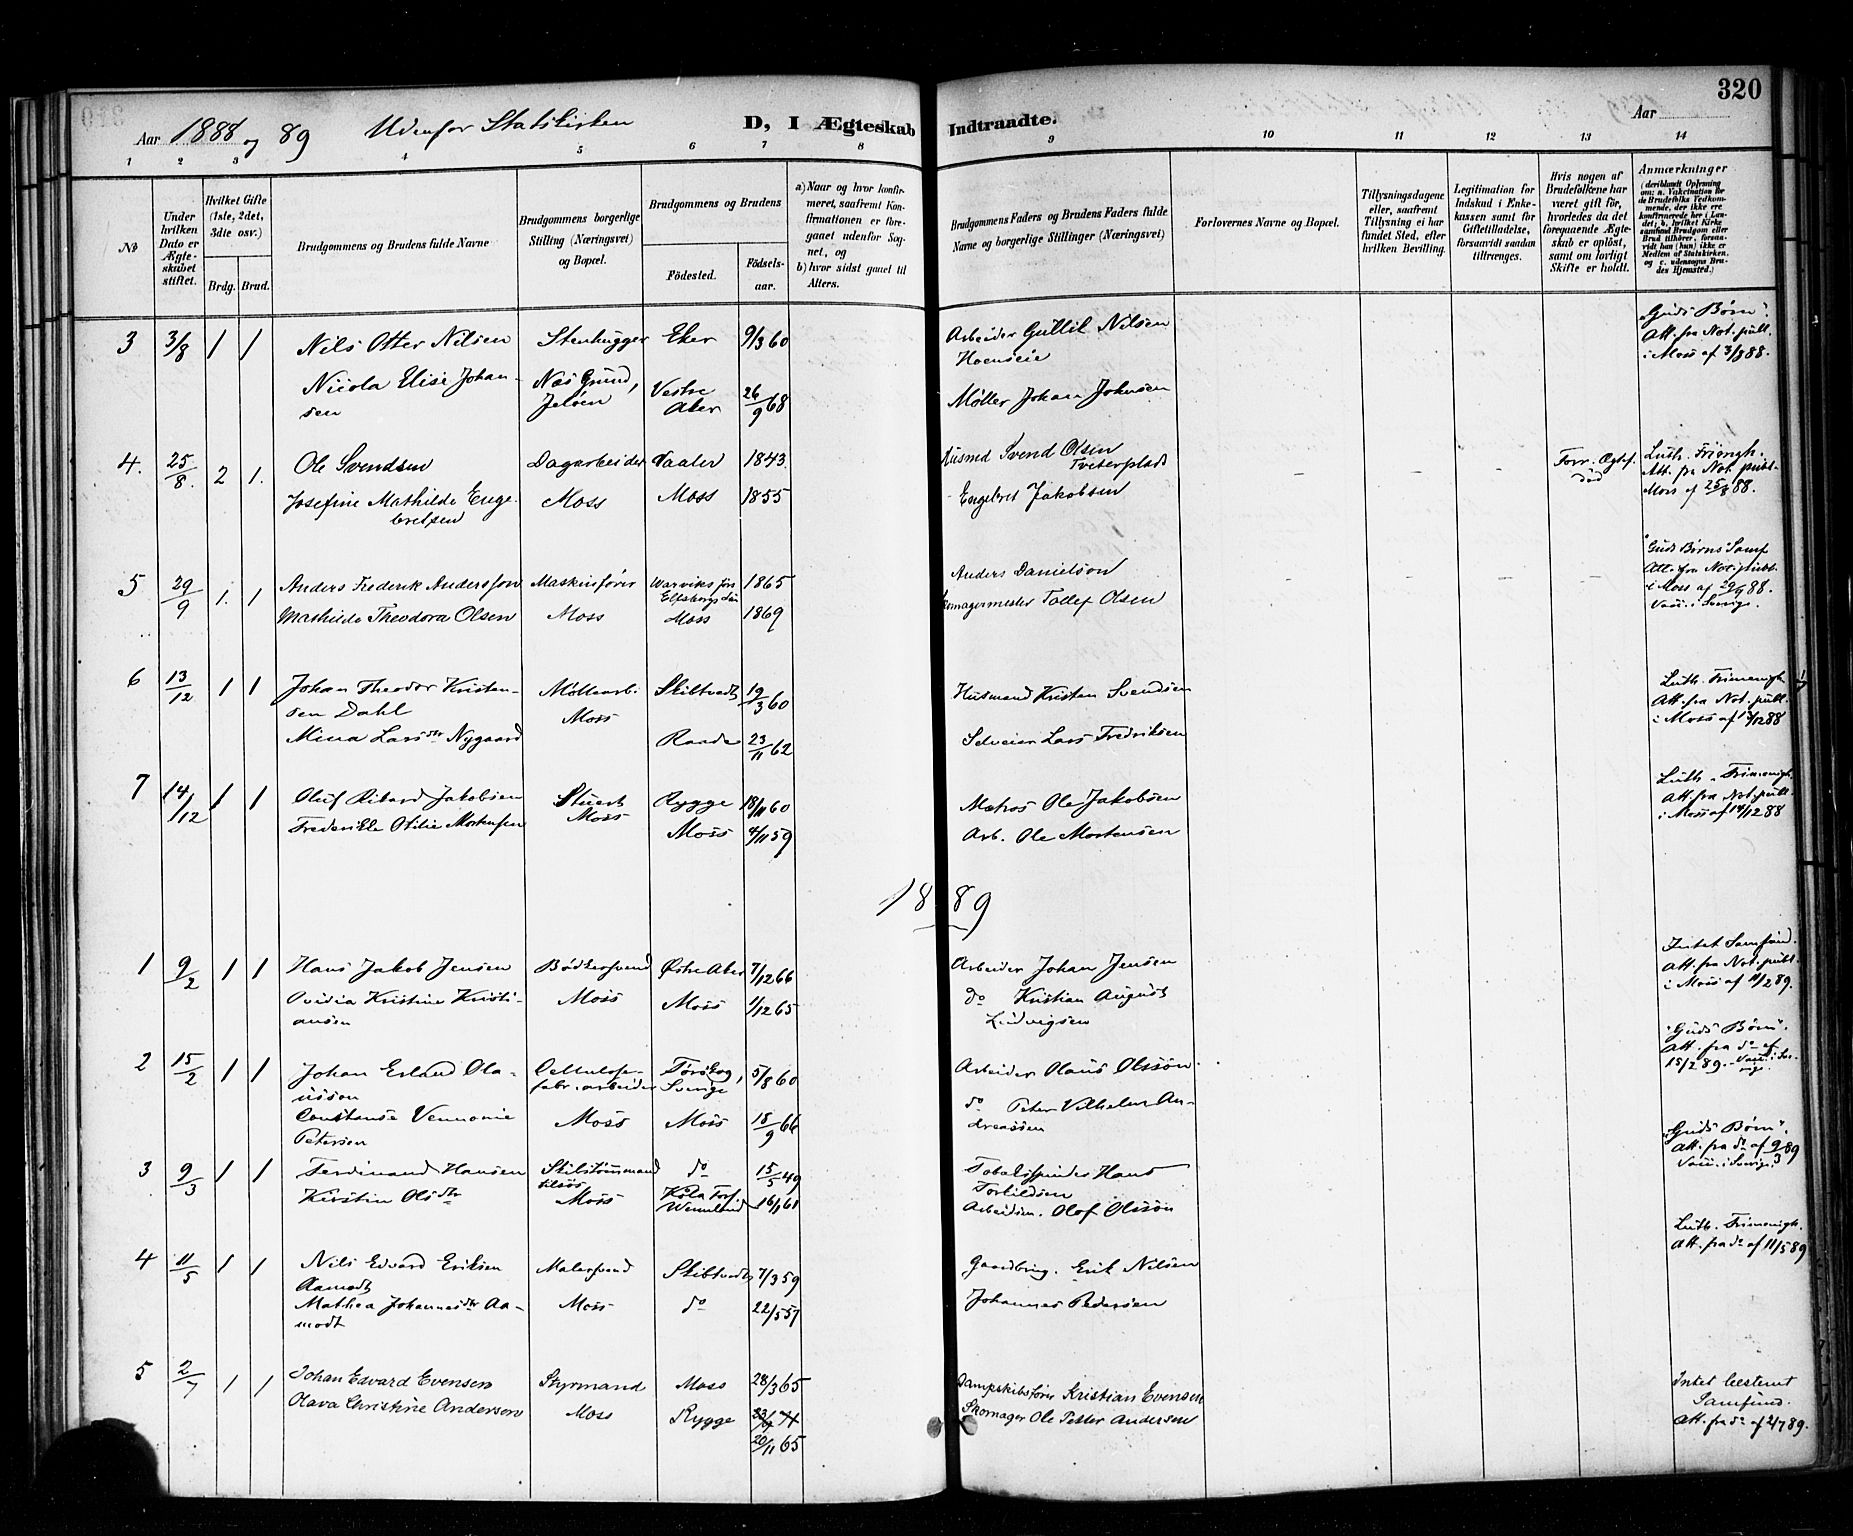 320
Aar 1888 og 89 Udenfor Statskirken D, I Ægteskab Indtraadte. Aar
1 2 3 4 5 6 7 8 9 10 11 12 13 14
No
Under hvilken Dato er Ægteskabet stiftet.
Hvilket Gifte (1ste, 2det, 3dte osv.)
Brdg. Brud.
Brudgommens og Brudens fulde Navne
Brudgommens borgerlige Stilling (Næringsvei) og Bopæl.
Brudgommens og Brudens
Födested. Födselsaar.
a) Naar og hvor konfirmeret, saafremt Konfirmationen er foregaaet udenfor Sognet, og
b) hvor sidst gaaet til Alters.
Brudgommens Faders og Brudens Faders fulde Navne og borgerlige Stillinger (Næringsvei)
Forlovernes Navne og Bopæl.
Tillysningsdagene eller, saafremt Tillysning ei har fundet Sted, efter hvilken Bevilling.
Legitimation for Indskud i Enkekassen samt for Giftetilladelse, forsaavidt saadan tiltrænges.
Hvis nogen af Brudefolkene har været gift för, hvorledes da det foregaaende Ægteskab er oplöst, samt om lovligt Skifte er holdt.
Anmærkninger
(deriblandt Oplysning om: a. Vakcination for de Brudefolks Vedkommende, der ikke ere konfirmerede her i Landet; b. hvilket Kirkesamfund Brudgom eller Brud tilhörer, forsaavidt han (hun) ikke er Medlem af Statskirken, og c. udensogns Brudes Hjemsted.)
3 3/8 1 1 Nils Otter Nilsen Stenhugger Eker 9/3 60 Arbeider Gullik Nilsen "Guds Børn".
Hoenseie Att. fra Not. publ.
i Moss af 3/8 88.
Nicola Elise Johan- Næs Grund, Vestre 26/9 68 Møller Johan Johnsen
sen Jeløen Aker
4. 25/8. 2 1. Ole Svendsen Dagarbeider Vaaler 1843. Husmd Svend Olsen - - - Forr. Ægtef. Luth. Frimgh.
Tveterplads død Att. fra Not. publ.
Josefine Mathilde Enge- Moss Moss 1855 Engebret Jakobsen Moss af 25/8 88.
bretsen
5 29/9 1. 1 Anders Frederik Andersson Maskinfører 1865 Anders Danielson - - - - "Guds Børns" Samf
Att. fra Not. publ.
Mathilde Theodora Olsen Moss Moss 1869 Skomagermester Tollef Olsen i Moss af 29/9 88.
Vacc. i Sverige.
6 13/12 1 1 Johan Theodor Kristen- Møllearb. Skiltvedt 19/3 60 Husmand Kristen Svendsen Luth. Frimenigh.
sen Dahl Moss Att. fra Not. publ.
Mina Larsdtr Nygaard Raade 23/11 62 Selveier Lars Fredriksen i Moss af 13/12 88
7 14/12 1 1 Oluf Rikard Jakobsen Stuert Rygge 18/11 60 Matros Ole Jakobsen Luth. Frimenigh.
Moss Att. fra Not. publ.
Frederikke Otilie Mortensen Moss 4/11 59 Arb. Ole Mortensen i Moss af 14/12 88
1889
1 9/2 1 1 Hans Jakob Jensen Bødkersvend Østre Aker 7/12 66 Arbeider Johan Jensen Intet Samfund.
Att. fra Not. publ.
Ovidia Kristine Kristi- Moss Moss 1/12 65 do Kristian August i Moss af 11/2 89.
ansen Ludvigsen
2 15/2 1 1 Johan Erland Ola- Cellulose- 5/8 60 Arbeider Olaus Olssøn "Guds Børn".
usson fabr. arbeider Sverige Att. fra do af
15/2 89. Vacc. i Sverige.
Constanse Vennonie Moss Moss 18/9 66 do Peter Vilhelm An-
Petersen dreassen
3 9/3 1 1 Ferdinand Hansen do 15/5 49 Tobakspinder Hans "Guds Børn".
Torkildsen Att. fra do af 9/3 89
Kirstin Olsdtr Moss Köla Fors. 16/1 61 Arbeidsm. Olof Olssøn Vacc. i Sverige.
Wermland
4 11/5 1 1 Nils Edvard Eriksen Malersvend Skibtvedt 7/3 59 Gaardbrug. Erik Nilsen Luth. Frimenigh.
Aamodt Att. fra do af 11/5 89
Mathea Johannesdtr Aa- Moss do 22/5 57 Johannes Pedersen
modt
5 2/7 1 1 Johan Edvard Evensen Styrmand Moss 28/3 65 Dampskibsfører Kristian Evensen Intet bestemt
Samfund.
Olava Christine Andersen Moss Rygge 20/11 65 Skomager Ole Petter Andersen Att. fra do af 2/7 89.